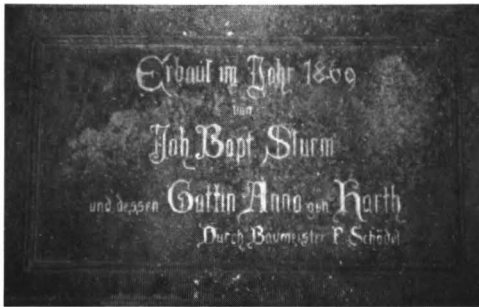 Erbaut im Jahr 1869
von
Joh Bapt Sturm
und dessen Gattin Anna geb Harth
Durch Baumeister P. Schödel